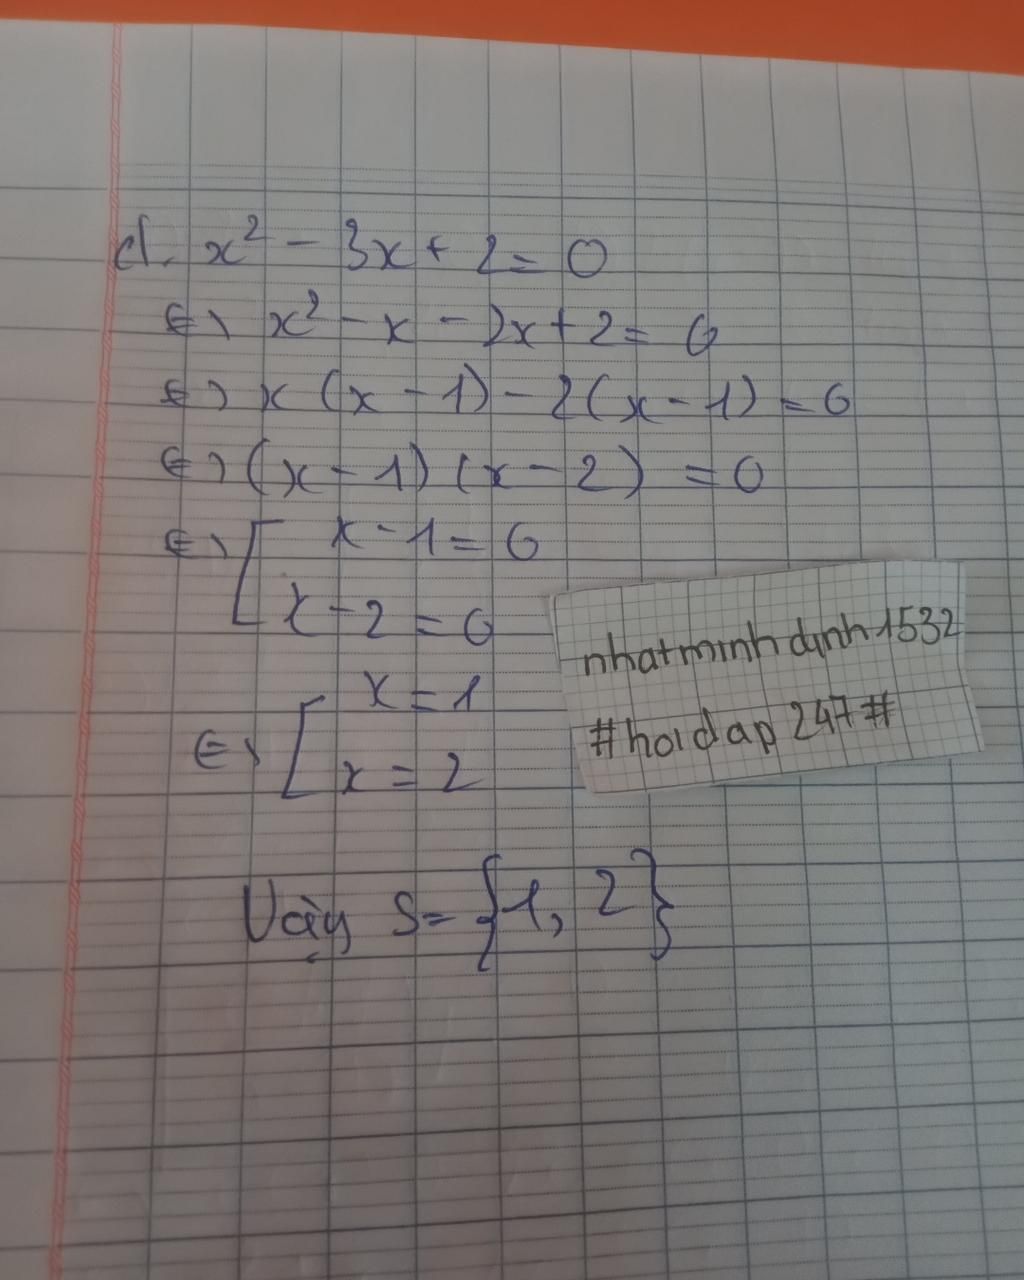 d. x² - 3x + 2 = 0
⇔ x² - x - 2x + 2 = 0
⇔ x (x - 1) - 2 (x - 1) = 0
⇔ (x - 1) (x - 2) = 0
⇔ [ x - 1 = 0
x - 2 = 0
⇔ [ x = 1
x = 2
Vậy S = {1, 2}
nhatminhdinh1532
#hoidap247#